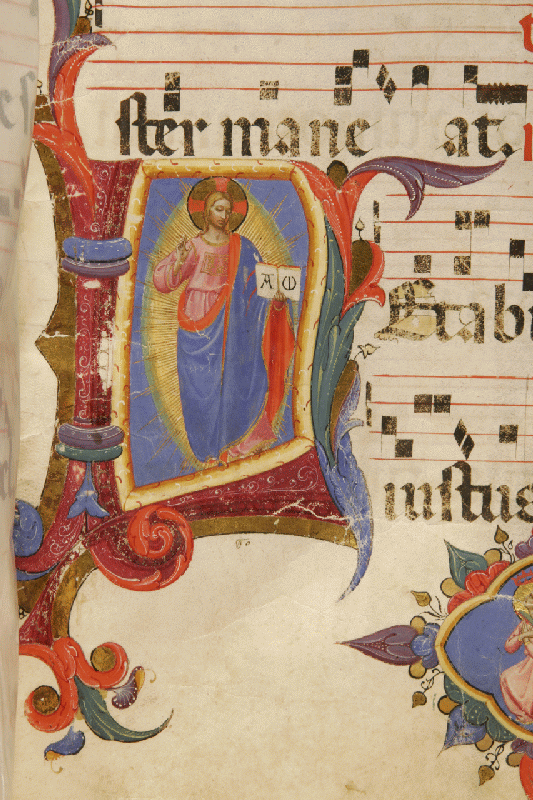 ster mane at.
A ω
Etabi
iustus